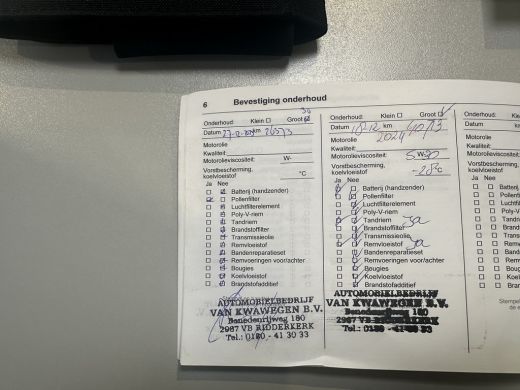 6 Bevestiging onderhoud
Onderhoud: Klein ☐ Groot ☑
Datum 27-12- km 26573
Motorolie
Kwaliteit:
Motorolieviscositeit: W-
Vorstbescherming, koelvloeistof °C
Ja Nee
Batterij (handzender)
Pollenfilter
Luchtfilterelement
Poly-V-riem
Tandriem
Brandstoffilter
Transmissieolie
Remvloeistof
Bandenreparatieset
Remvoeringen voor/achter
Bougies
Koelvloeistof
Brandstofadditief
AUTOMOBIELBEDRIJF
VAN KWAWEGEN B.V.
Benedenrijweg 180
2987 VB RIDDERKERK
Tel.: 0180 - 41 30 33
Onderhoud: Klein ☐ Groot ☑
Datum 18-12 km
2024
Motorolie
Kwaliteit:
Motorolieviscositeit: 5 W30
Vorstbescherming, koelvloeistof -28°C
Ja Nee
Batterij (handzender)
Pollenfilter
Luchtfilterelement
Poly-V-riem
Tandriem
Brandstoffilter
Transmissieolie
Remvloeistof
Bandenreparatieset
Remvoeringen voor/achter
Bougies
Koelvloeistof
Brandstofadditief
AUTOMOBIELBEDRIJF
VAN KWAWEGEN B.V.
Benedenrijweg 180
2987 VB RIDDERKERK
Tel.: 0180 - 41 30 33
Onderhoud:
Datum
Motorolie
Kwaliteit:
Motorolieviscositeit
Vorstbescherming, koelvloeistof
Ja Nee